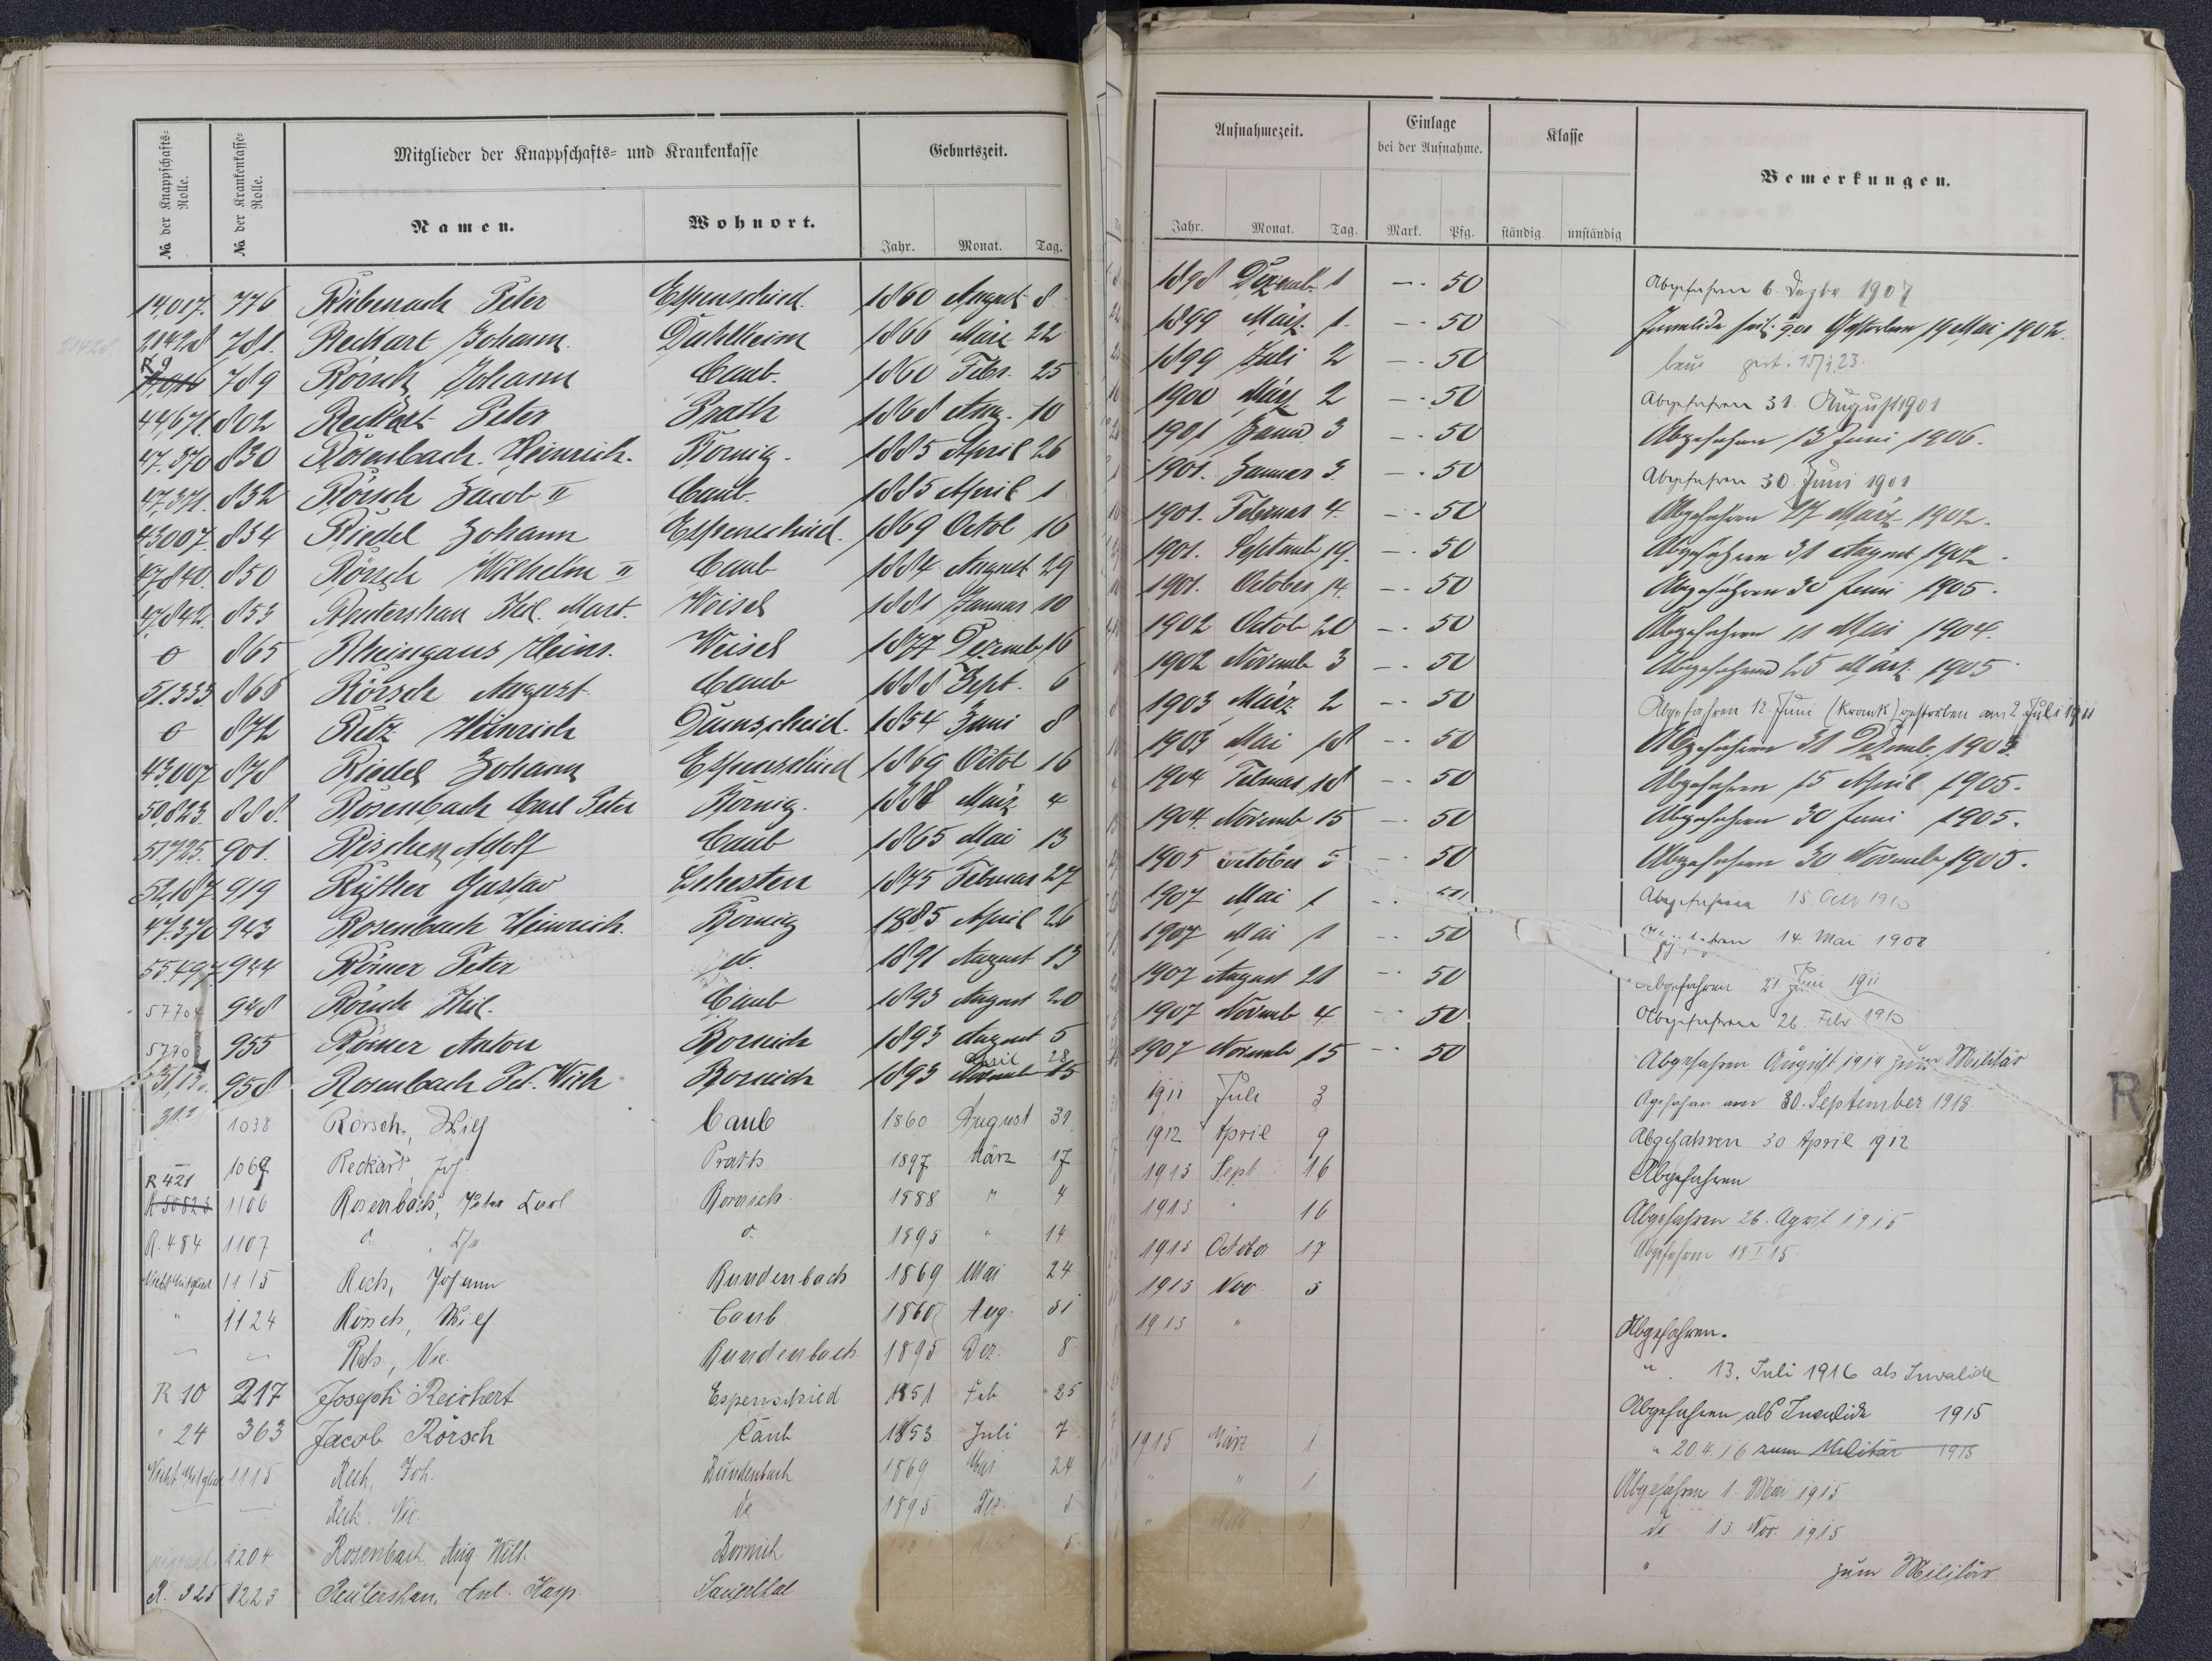 № der Knappschafts-Rolle.
№ der Krankenkasse-Rolle.
Mitglieder der Knappschafts- und Krankenkasse
Namen.
Wohnort.
Geburtszeit.
Jahr. Monat. Tag.
14,017. 776 Rübenach Peter Espenschied. 1860 August 8
21428 781. Reckart Johann Dahlheim 1866 März 22
R 9 789 Rörsch Johann Caub. 1860 Febr. 25
44,671. 802 Reckart Peter Prath 1868 Aug. 10
47.370 830 Rosenbach Heinrich. Bornig. 1885 April 26
47,371. 832 Rörsch Jacob II Caub. 1885 April 1
43007. 834 Riedel Johann Espenschied. 1869 Octob 16
47,840. 850 Rörsch Wilhelm II Caub 1884 August 29
47,842. 853 Reutershan Phil. Mart. Weisel 1881 Januar 10
0 865 Rheingans Heinr. Weisel 1877 Dezemb. 16
51.333 866 Rörsch August Caub 1888 Sept. 6
0 872 Retz Heinrich Damscheid. 1854 Juni 8
43,007 878 Riedel Johann Espenschied 1869 Octob 16
50.823. 888. Rosenbach Carl Peter Bornig. 1888 März 4
51.725. 901. Rischen Adolf Caub 1865 Mai 13
52,187. 919 Ryther Gustav Lehesten 1875 Februar 27
47.370 943 Rosenbach Heinrich. Bornig 1885 April 26
55.497. 944 Römer Peter do. 1891 August 13
57704 948 Rörsch Phil. Caub 1893 August 20
5770 955 Römer Anton Bornich 1893 August 5
958. Rosenbach Pet. Wilh Bornich 1893 April 28
1038 Rörsch, Wilh Caub 1860 August 31
1069 Reckart, Joh. Prath 1897 März 17
R 421
R 50823 1106 Rosenbach, Peter Carl Bornich 1888 " 4
R. 484 1107 d. d. 1895 " 14
Nicht Mitglied 1115 Rech, Johann Bundenbach 1869 Mai 24
" 1124 Rörsch, Wilh Caub 1860 Aug. 31
Rech, Nic. Bundenbach 1895 Dez. 8
R 10 217 Joseph Reichert Espenschied 1851 Feb 25
" 24 363 Jacob Rörsch Caub 1853 Juli 7
Nicht Mitglied 1115 Rech, Joh. Bundenbach 1869 Mai 24
Rech. Nic. do 1895 Dez. 8
1204 Rosenbach Aug Wilh. Bornich
R. 325 1223 Reutershan, Ant. Kasp. Sauerthal
Aufnahmezeit.
Einlage bei der Aufnahme.
Klasse
Bemerkungen.
Jahr. Monat. Tag. Mark. Pfg. ständig unständig
1898 Dezemb. 1 — 50 Abgefahren 6. Dezbr 1907
1899 März. 1. — 50 Invalide seit 901 Gestorben 19 Mai 1902.
1899 Juli 2 — 50 gest. 23.
1900 März 2 — 50 Abgefahren 31. August 1901
1901 Januar 3 — 50 Abgefahren 13 Juni 1906.
1901. Januar 3 — 50 Abgefahren 30. Juni 1901
1901. Februar 4. — 50 Abgefahren 27 März 1902.
1901. Septemb 19. — 50 Abgefahren 31 August 1902.
1901. October 14. — 50 Abgefahren 30 Juni 1905.
1902 Octob 20 — 50 Abgefahren 11 Mai 1904.
1902 Novemb 3 — 50 Abgefahren 25 März 1905
1903 März 2 — 50 Abgefahren 12. Juni (krank) gestorben am 2 Juli 1911
1903 Mai 18 — 50 Abgefahren 31 Dezemb. 1903.
1904 Februar 18 — 50 Abgefahren 15 April 1905.
1904. Novemb 15 — 50 Abgefahren 30 Juni 1905.
1905 October 5 — 50 Abgefahren 30 Novemb 1905.
1907 Mai 1 Abgefahren 15 Octb 1910
1907 Mai 1 — 50 14 Mai 1908
1907 August 21 — 50 Abgefahren 21 Juni 1911
1907 Novemb 4 — 50 Abgefahren 26. Febr 1910
1907 Novemb 15 — 50 Abgefahren August 1914 zum Militär
1911 Juli 3 Agefahren am 30. September 1918.
1912 April 9 Abgefahren 30 April 1912
1913 Sept. 16 Abgefahren
1913 " 16 Abgefahren 26. April 1915
1913 October 17 Abgefahren 18 I 15.
1913 Nov 3
1913 " Abgefahren.
" 13. Juli 1916 als Invalide
Abgefahren als Invalide 1915
1915 März 1. " 20.4.16 zum Militär 1915
" " 1. Abgefahren 1. Mai 1915
do 13. Nov. 1915
" zum Militär
R